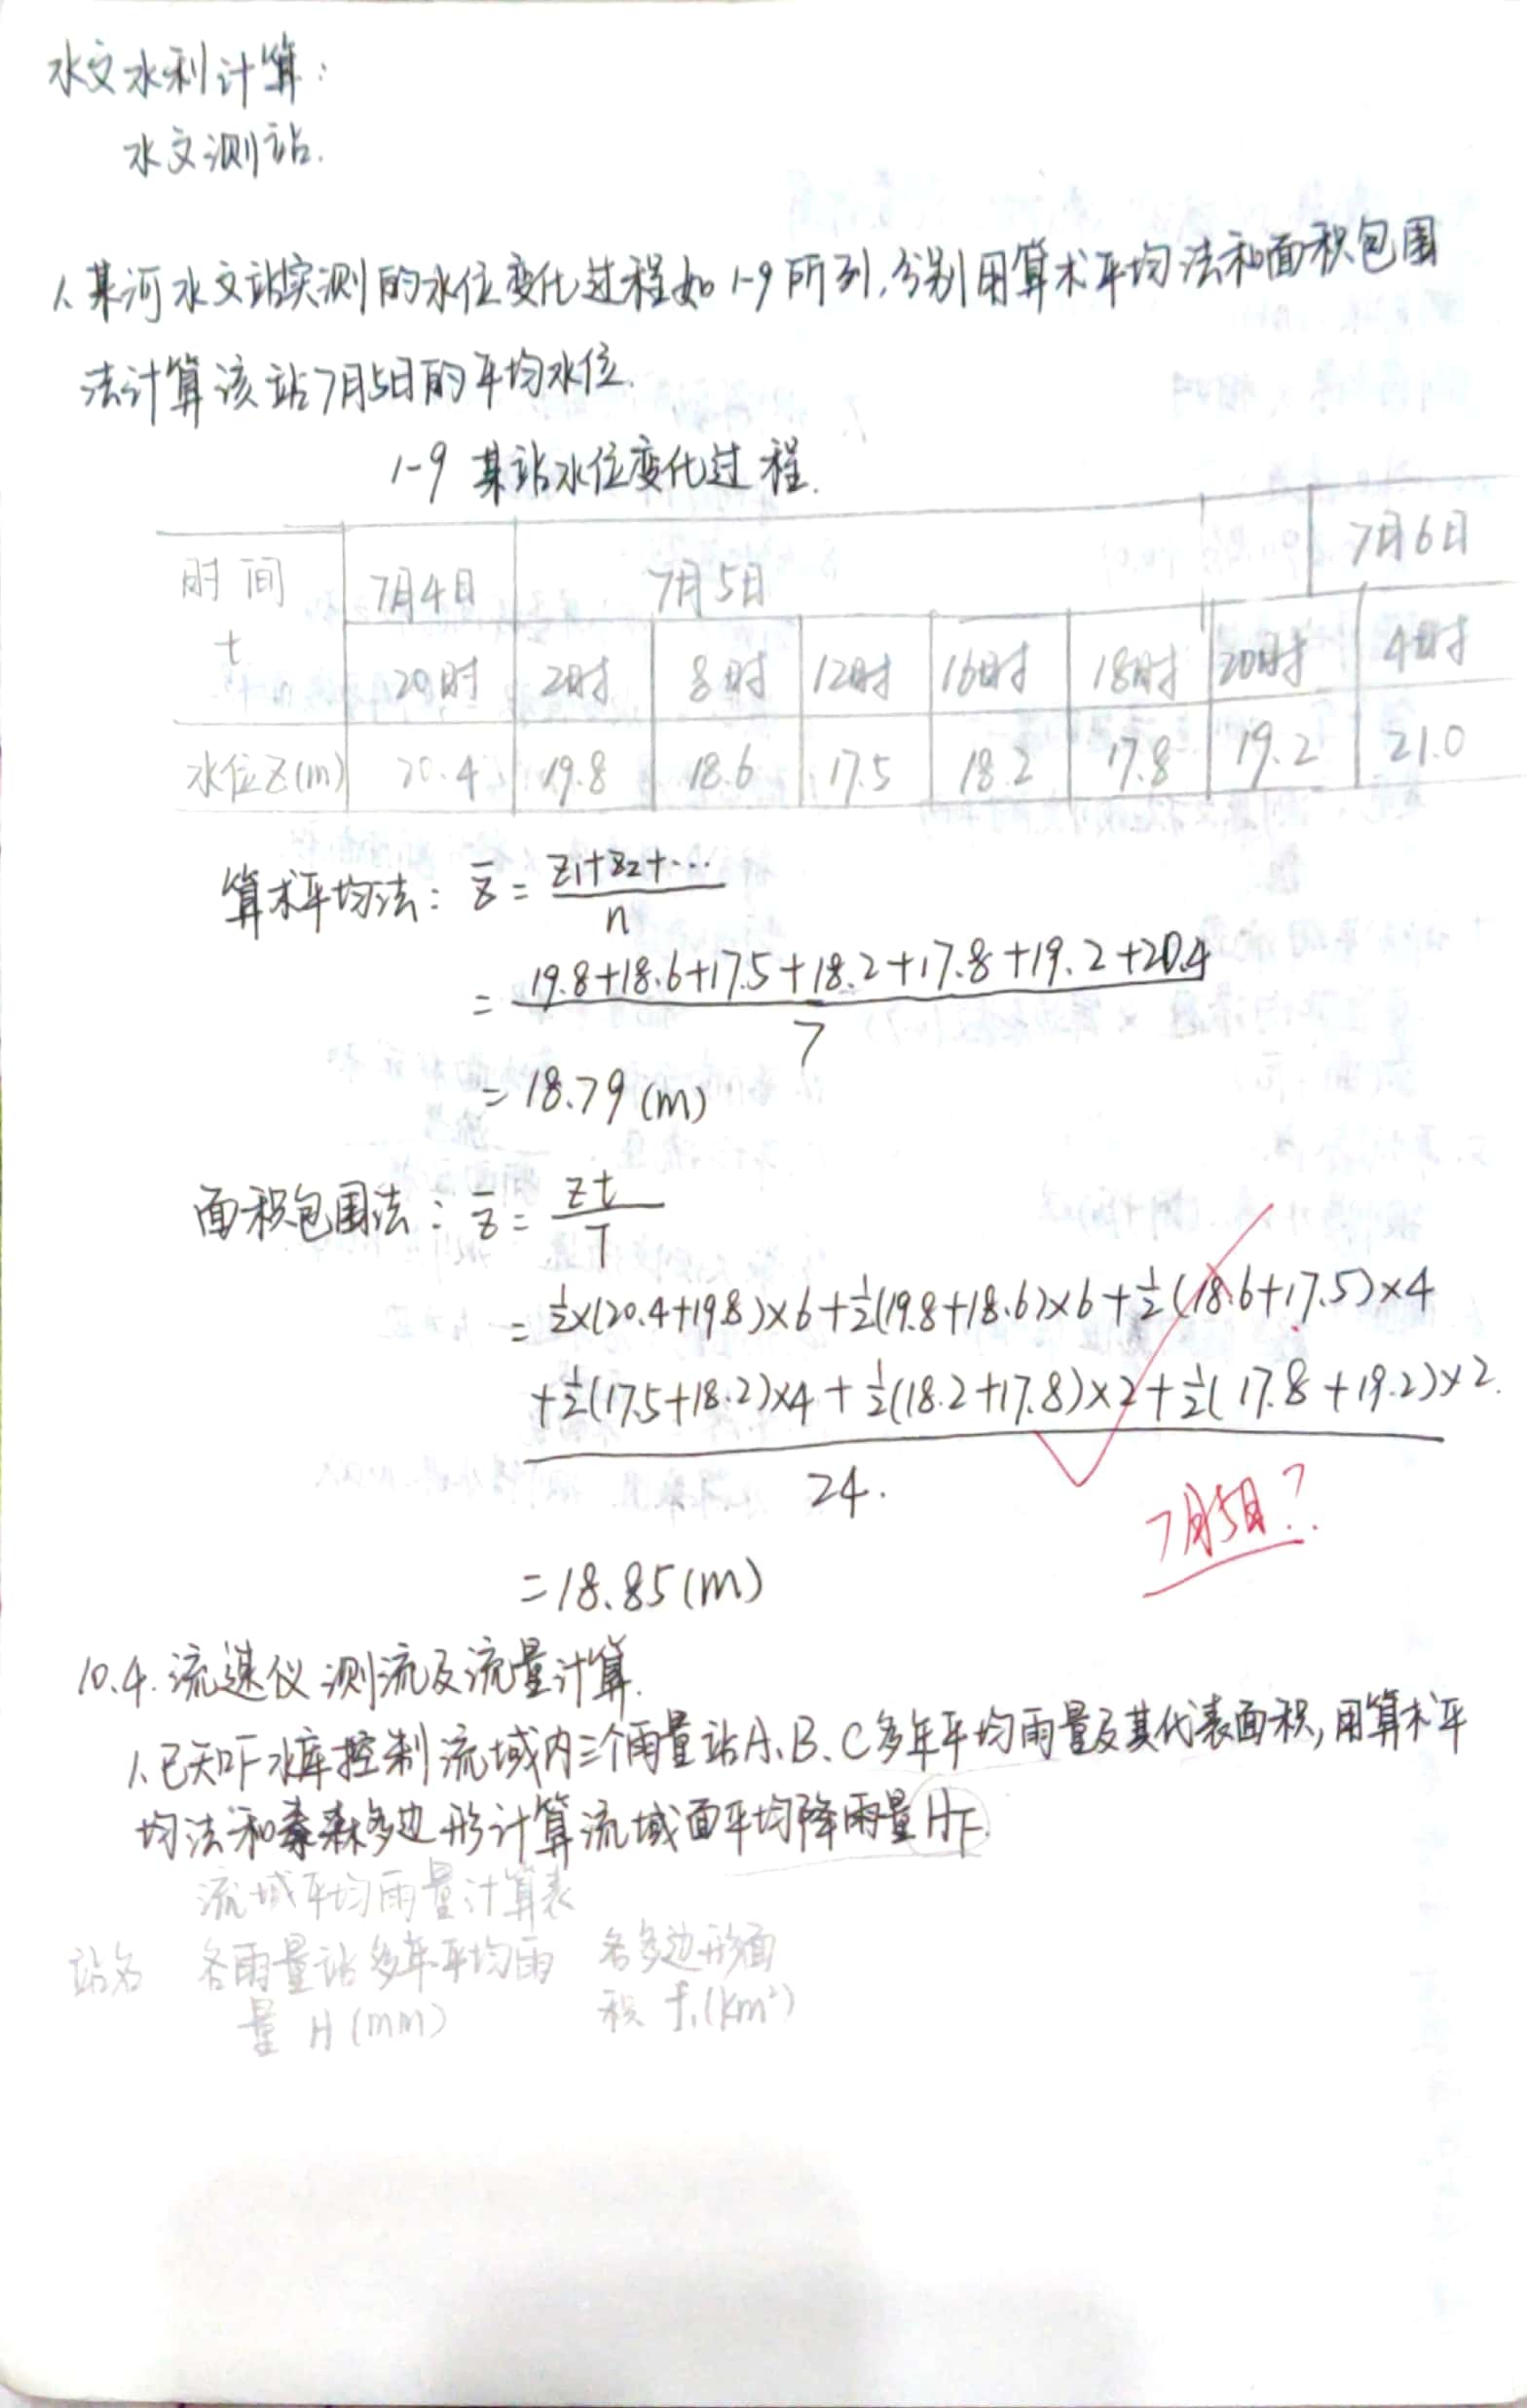 水文水利计算:
水文测站.
1. 某河水文站实测的水位变化过程如1-9所列,分别用算术平均法和面积包围
法计算该站7月5日的平均水位.
1-9 某站水位变化过程.
时间 t 7月4日 7月5日 7月6日
20时 2时 8时 12时 16时 18时 20时 4时
水位Z(m) 20.4 19.8 18.6 17.5 18.2 17.8 19.2 21.0
算术平均法: z̄ = (z₁+z₂+…)/n
= (19.8+18.6+17.5+18.2+17.8+19.2+20.4)/7
= 18.79(m)
面积包围法: z̄ = zt/T
= ½×(20.4+19.8)×6+½(19.8+18.6)×6+½(18.6+17.5)×4
+½(17.5+18.2)×4+½(18.2+17.8)×2+½(17.8+19.2)×2.
24.
7月5日?
=18.85(m)
10.4. 流速仪测流及流量计算.
1. 已知F水库控制流域内三个雨量站A、B、C多年平均雨量及其代表面积,用算术平
均法和泰森多边形计算流域面平均降雨量HF.
流域平均雨量计算表
站名 各雨量站多年平均雨 各多边形面
量 H(mm) 积 f₁(km²)